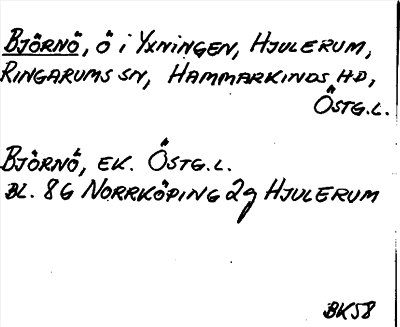 BJÖRNÖ, Ö i YXNINGEN, HJULERUM,
RINGARUMS SN, HAMMARKINDS HD,
ÖSTG.L.
BJÖRNÖ, EK. ÖSTG.L.
BL. 8G NORRKÖPING 2g HJULERUM
BK58